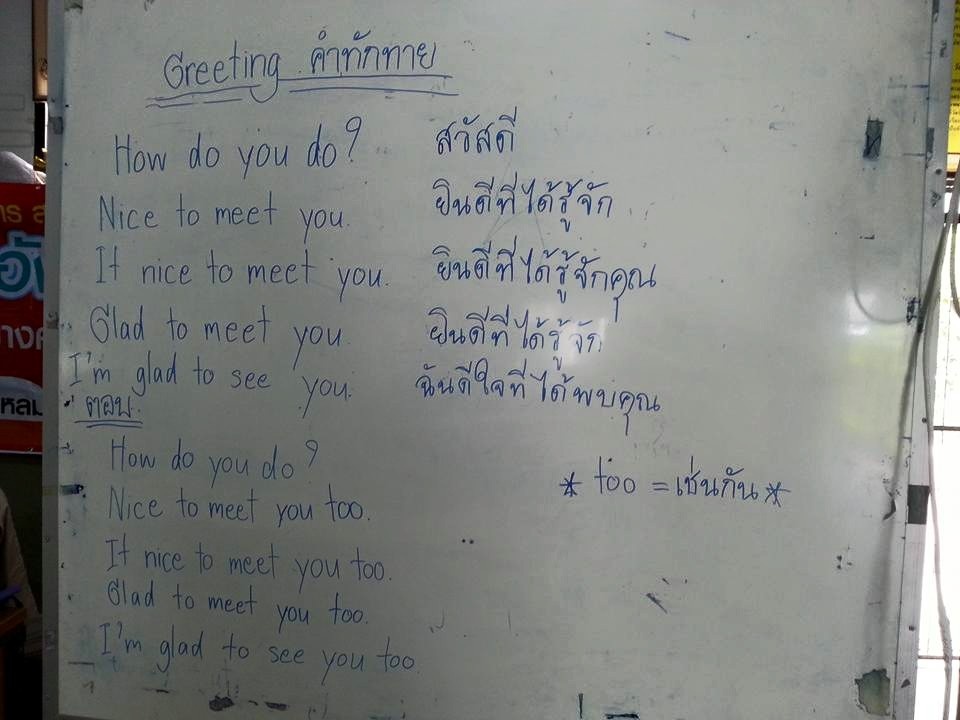 Greeting คำทักทาย
How do you do? สวัสดี
Nice to meet you. ยินดีที่ได้รู้จัก
It nice to meet you. ยินดีที่ได้รู้จักคุณ
Glad to meet you. ยินดีที่ได้รู้จัก
I'm glad to see you. ฉันดีใจที่ได้พบคุณ
ตอบ
How do you do?
Nice to meet you too. * too = เช่นกัน *
It nice to meet you too.
Glad to meet you too.
I'm glad to see you too